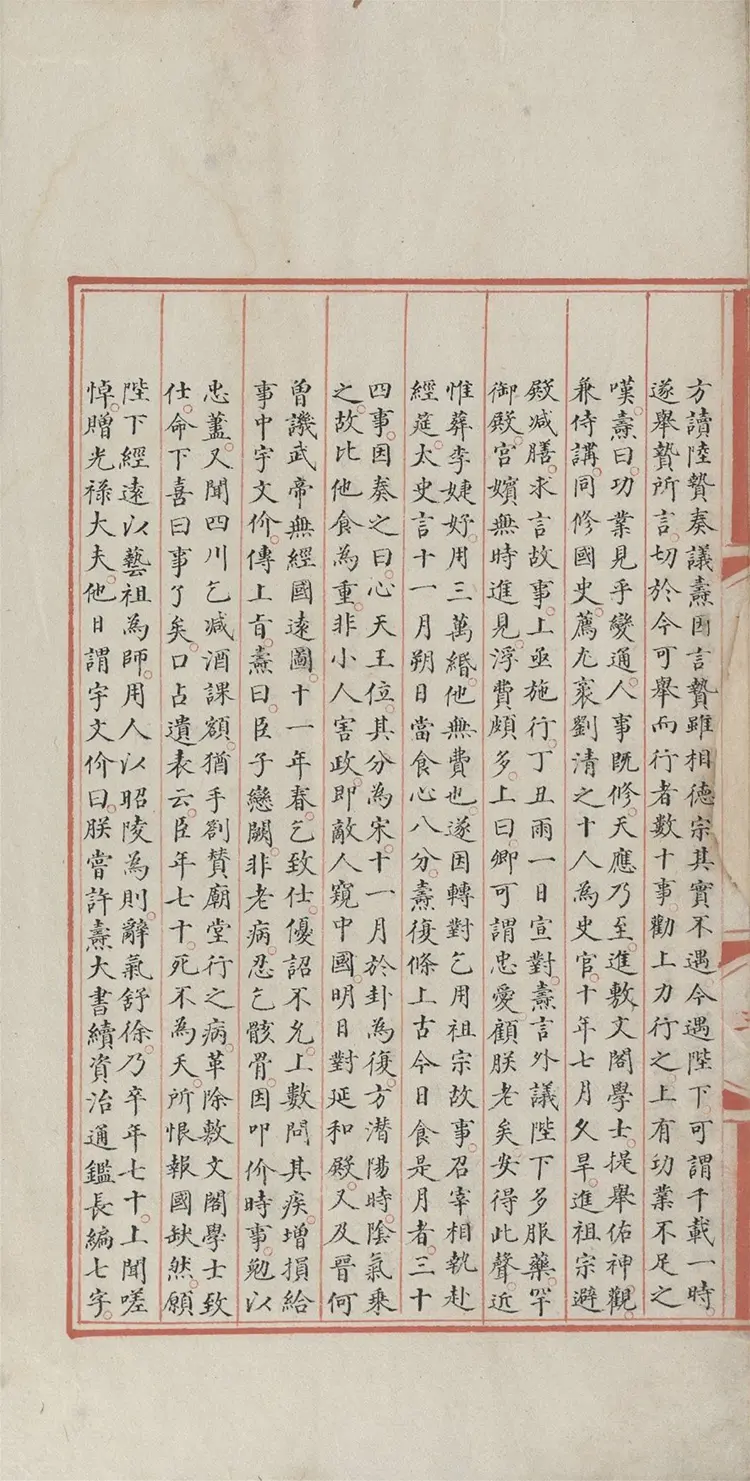 方讀陸贄奏議燾因言贄雖相德宗其實不遇今遇陛下可謂千載一時
遂舉贄所言切於今可舉而行者數十事勸上力行之上有功業不足之
嘆燾曰功業見乎變通人事既修天應乃至進敷文閣學士提舉佑神觀
兼侍講同修國史薦尤袤劉清之十人為史官十年七月久旱進祖宗避
殿減膳求言故事上亟施行丁丑雨一日宣對燾言外議陛下多服藥罕
御殿宮嬪無時進見浮費頗多上曰卿可謂忠愛顧朕老矣安得此聲近
惟葬李婕妤用三萬緡他無費也遂因轉對乞用祖宗故事召宰相執赴
經筵太史言十一月朔日當食心八分燾復條上古今日食是月者三十
四事因奏之曰心天王位其分為宋十一月於卦為復方潛陽時陰氣乘
之故比他食為重非小人害政即敵人窺中國明日對延和殿又及晉何
曾譏武帝無經國遠圖十一年春乞致仕優詔不允上數問其疾增損給
事中宇文价傳上旨燾曰臣子戀闕非老病忍乞骸骨因叩价時事勉以
忠藎又聞四川乞減酒課額猶手劄贊廟堂行之病革除敷文閣學士致
仕命下喜曰事了矣口占遺表云臣年七十死不為夭所恨報國缺然願
陛下經遠以藝祖為師用人以昭陵為則辭氣舒徐乃卒年七十上聞嗟
悼贈光祿大夫他日謂宇文价曰朕嘗許燾大書續資治通鑑長編七字